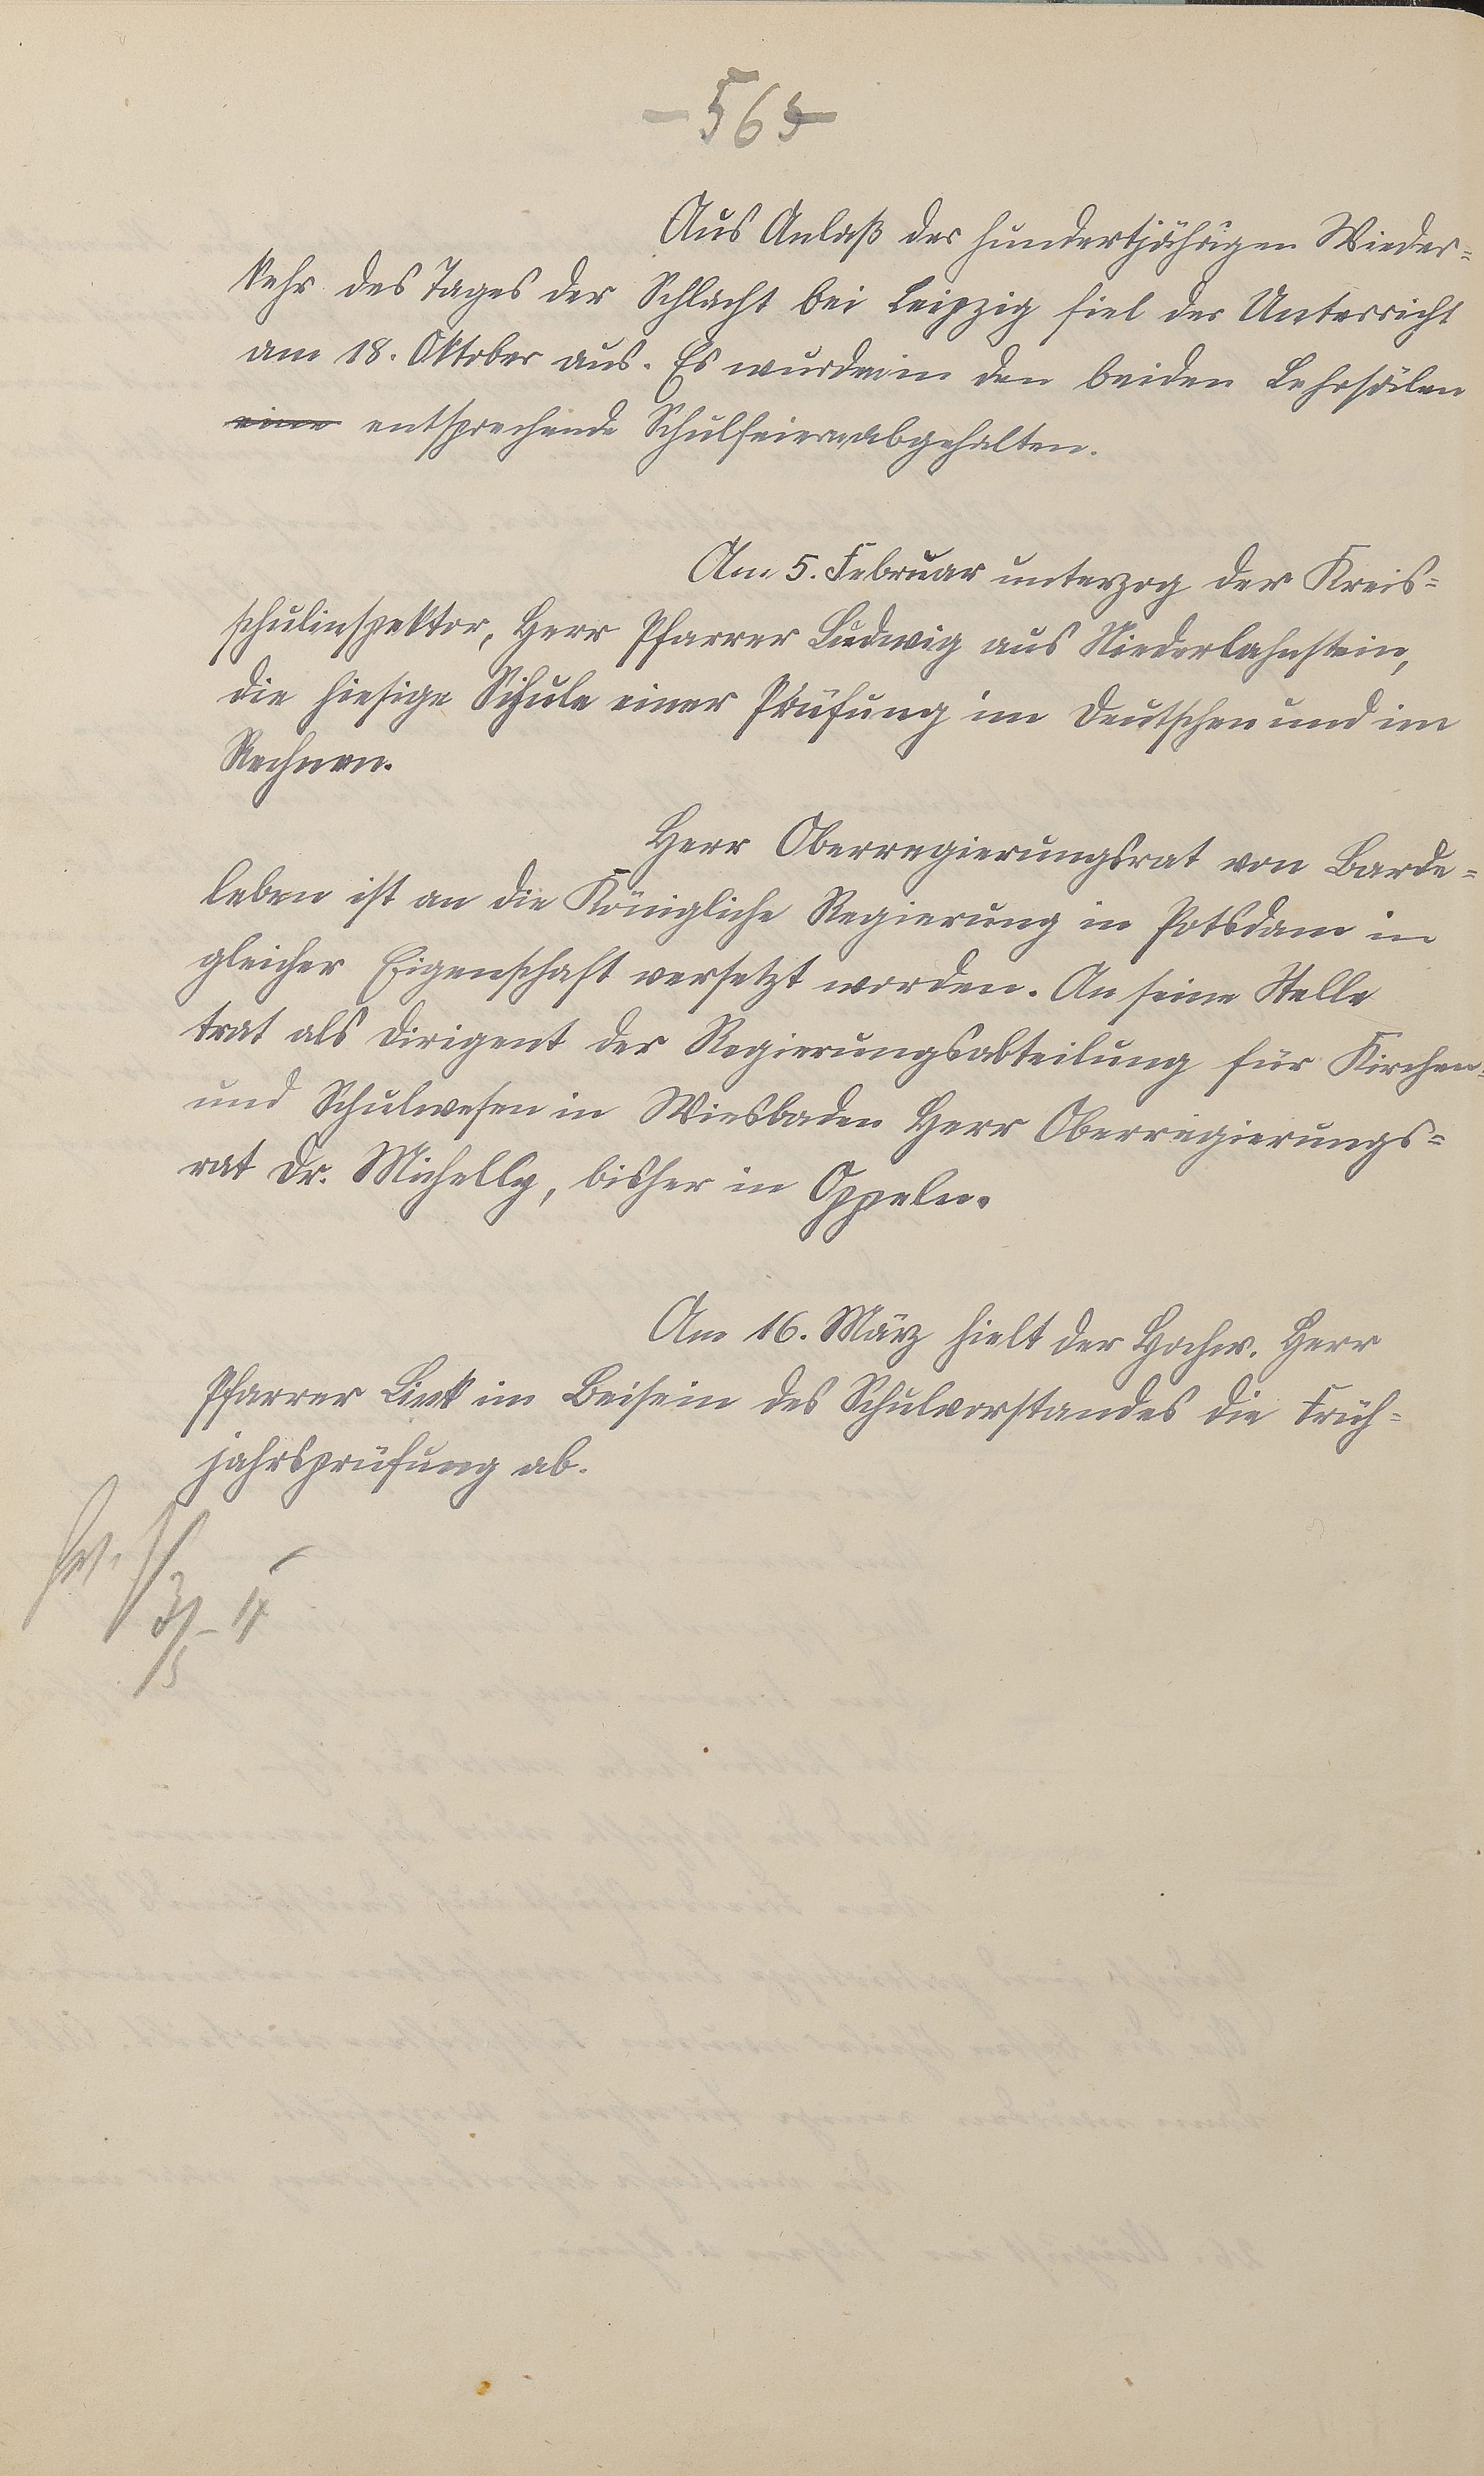 -565-
Aus Anlaß der hundertjährigen Wieder=
kehr des Tages der Schlacht bei Leipzig fiel der Unterricht
am 18. Oktober aus. Es wurden in den beiden Lehrsälen
eine entsprechende Schulfeiern abgehalten.
Am 5. Februar unterzog der Kreis=
schulinspektor, Herr Pfarrer Ludwig aus Niederlahnstein,
die hiesige Schule einer Prüfung im Deutschen und im
Rechnen.
Herr Oberregierungsrat von Barde=
leben ist an die Königliche Regierung in Potsdam in
gleicher Eigenschaft versetzt worden. An seine Stelle
trat als Dirigent der Regierungsabteilung für Kirchen=
und Schulwesen in Wiesbaden Herr Oberregierungs=
rat Dr. Michelly, bisher in Oppeln.
Am 16. März hielt der Hochw. Herr
Pfarrer Link im Beisein des Schulvorstandes die Früh=
jahrsprüfung ab.